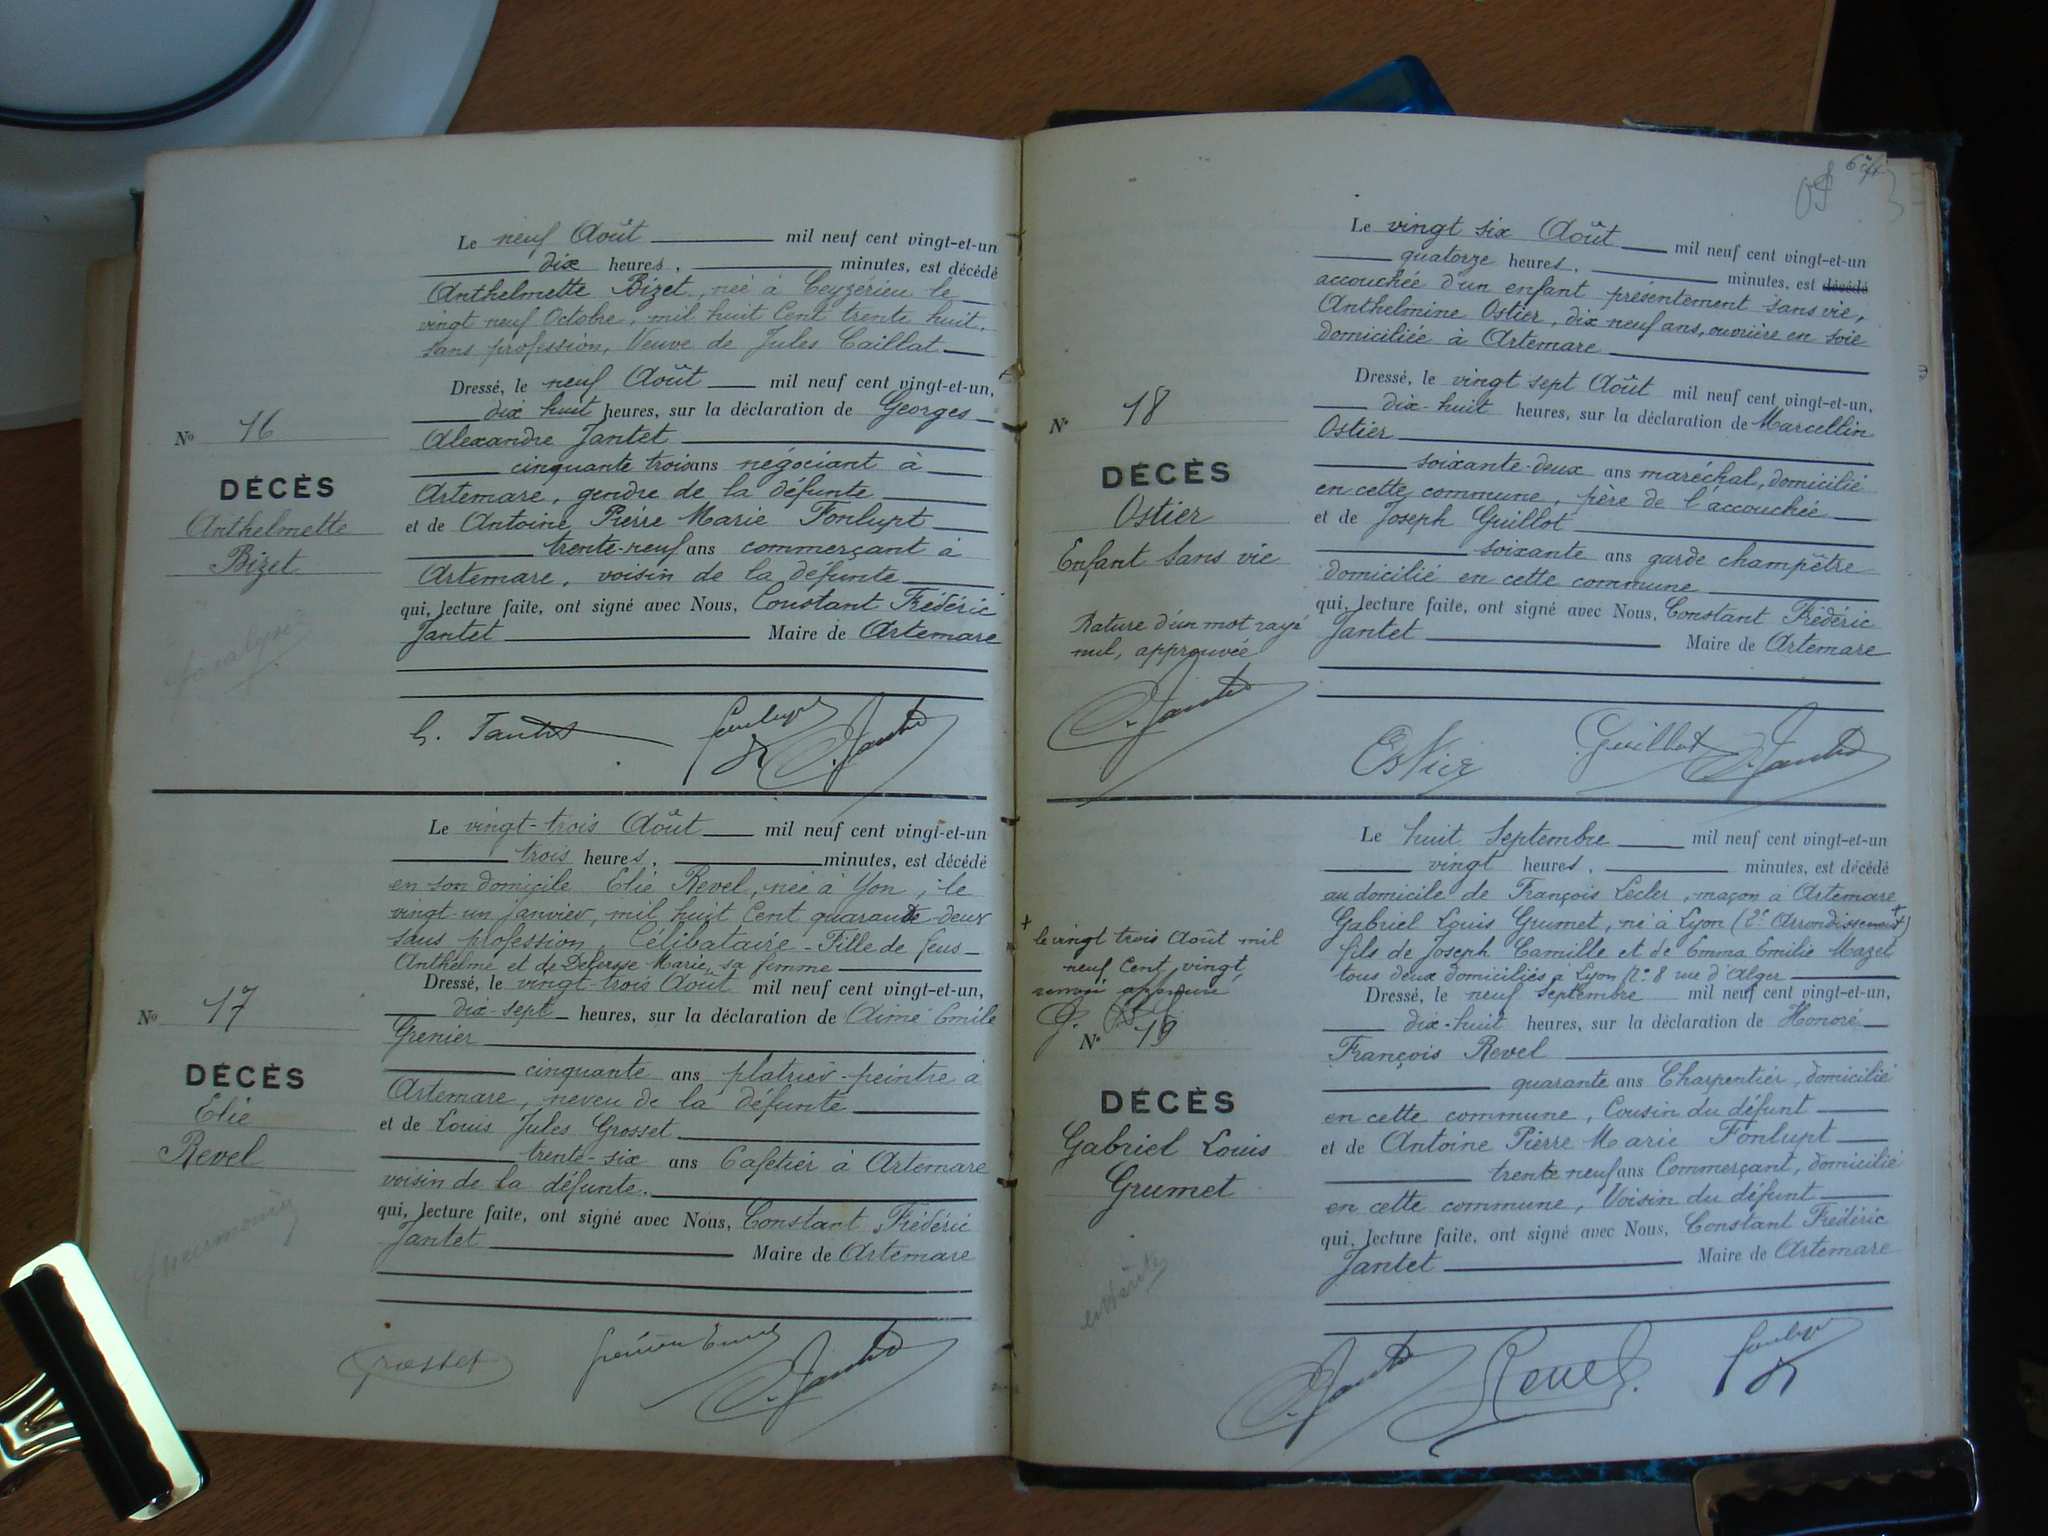 Le neuf Août mil neuf cent vingt-et-un
dix heures, minutes, est décédé
Anthelmette Bizet, née à Ceyzérieu le
vingt neuf Octobre, mil huit Cent trente huit,
sans profession, Veuve de Jules Caillat
Dressé, le neuf Août mil neuf cent vingt-et-un,
dix huit heures, sur la déclaration de Georges
Nº 16
Alexandre Jantet
cinquante trois ans négociant à
DÉCÈS
Artemare, gendre de la défunte
Anthelmette
et de Antoine Pierre Marie Fonlupt
trente-neuf ans commerçant à
Bizet
Artemare, voisin de la défunte
qui, lecture faite, ont signé avec Nous, Constant Frédéric
Jantet Maire de Artemare
G. Jantet Fonlupt C. Jantet
Le vingt-trois Août mil neuf cent vingt-et-un
trois heures, minutes, est décédé
en son domicile Elie Revel, née à Yon, le
vingt-un janvier, mil huit Cent quarante-deux
sans profession, Célibataire - Fille de feus
Anthelme et de Marie, sa femme
Dressé, le vingt-trois Août mil neuf cent vingt-et-un,
Nº 17
dix-sept heures, sur la déclaration de Aimé Emile
Grenier
DÉCÈS
cinquante ans platrier-peintre à
Elie
Artemare, neveu de la défunte
et de Louis Jules Grosset
Revel
trente-six ans Cafetier à Artemare
voisin de la défunte.
qui, lecture faite, ont signé avec Nous, Constant Frédéric
Jantet Maire de Artemare
Grosset C. Jantet
Le vingt six Août mil neuf cent vingt-et-un
quatorze heures, minutes, est décédé
accouchée d'un enfant présentement sans vie,
Anthelmine Ostier, dix neuf ans, ouvrière en soie
domiciliée à Artemare
Dressé, le vingt sept Août mil neuf cent vingt-et-un,
Nº 18
dix-huit heures, sur la déclaration de Marcellin
Ostier
DÉCÈS
soixante-deux ans maréchal, domicilié
en cette commune, père de l'accouchée
Ostier
et de Joseph Guillot
Enfant Sans vie
soixante ans garde champêtre
domicilié en cette commune
qui, lecture faite, ont signé avec Nous, Constant Frédéric
Rature d'un mot rayé
Jantet Maire de Artemare
nul, approuvée
C. Jantet
Ostier Guillot C. Jantet
Le huit Septembre mil neuf cent vingt-et-un
vingt heures, minutes, est décédé
au domicile de François Lecler, maçon à Artemare
Gabriel Louis Grumet, né à Lyon (2e Arrondissement) +
+ le vingt trois Août mil
fils de Joseph Camille et de Emma Emilie Mazet
neuf Cent vingt,
tous deux domiciliés à Lyon Nº 8 rue d'Alger
renvoi approuvé
Dressé, le neuf Septembre mil neuf cent vingt-et-un,
dix-huit heures, sur la déclaration de Honoré
Nº 19
François Revel
quarante ans Charpentier, domicilié
DÉCÈS
en cette commune, Cousin du défunt
Gabriel Louis
et de Antoine Pierre Marie Fonlupt
Grumet
trente neuf ans Commerçant, domicilié
en cette commune, Voisin du défunt
qui, lecture faite, ont signé avec Nous, Constant Frédéric
Jantet Maire de Artemare
entérite
C. Jantet Revel Fonlupt